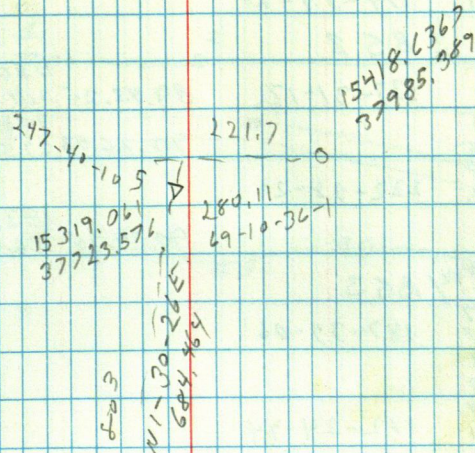 15418.6367
37985.389
221.7
247-40-10 5
280.11
69-10-36-1
15319.061
37723.576
N1-30-26E
684.464
803